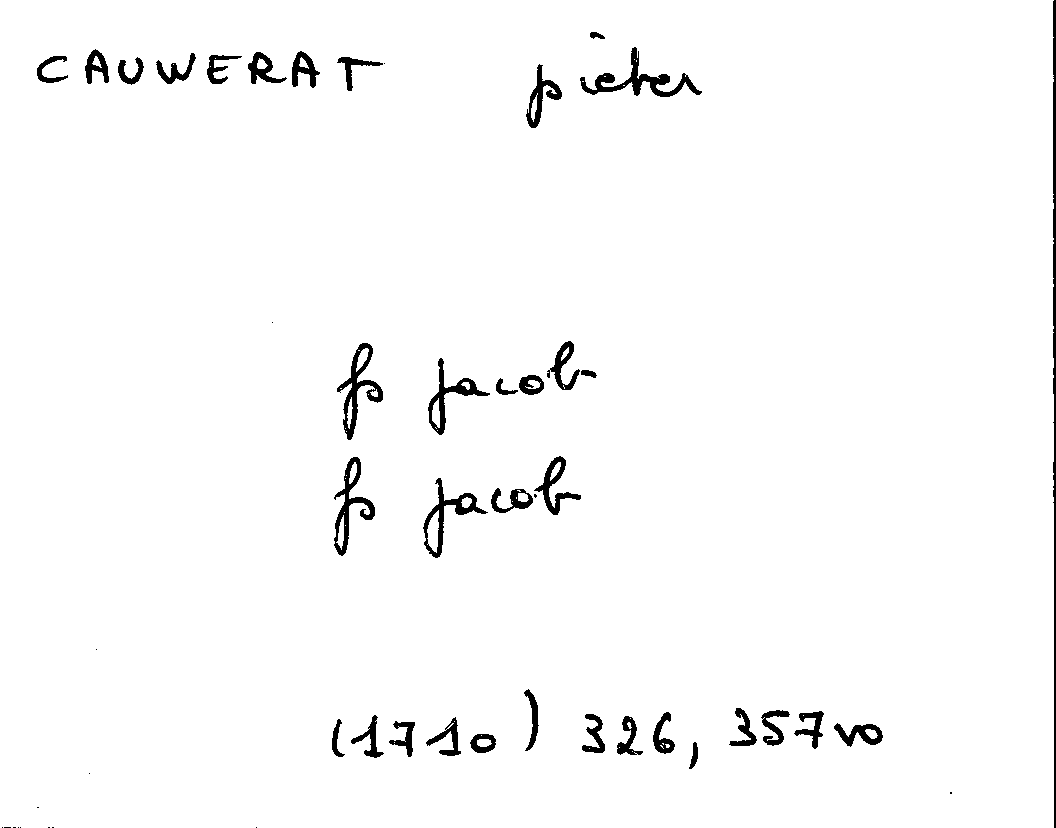 CAUWERAT pieter
fs jacob
fs jacob
(1710) 326, 357vo